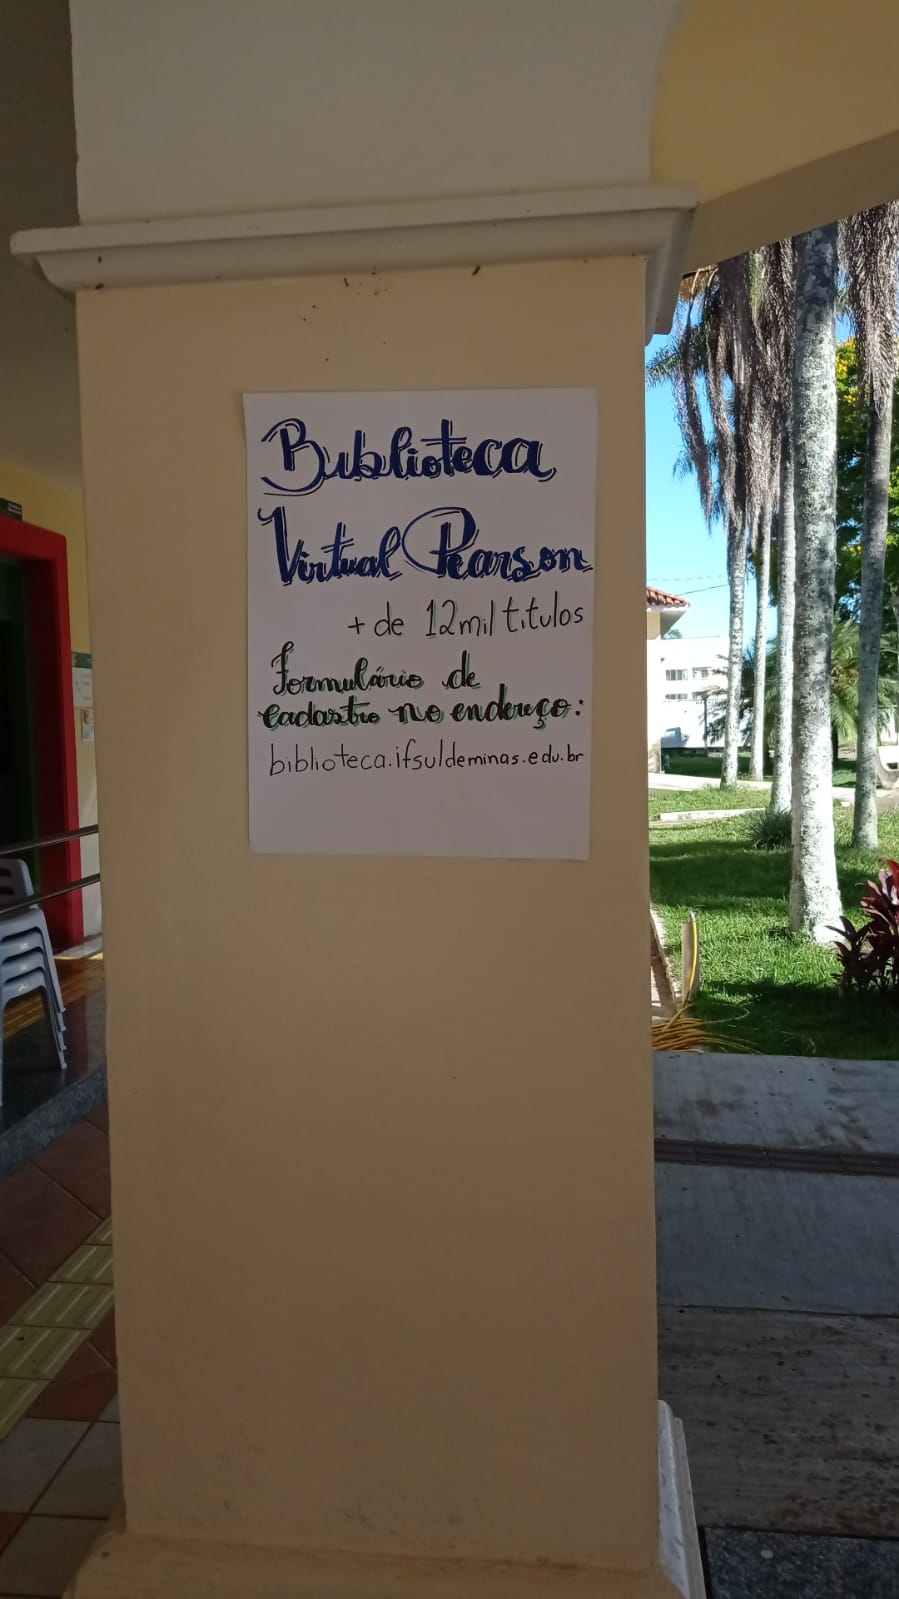 Biblioteca
Virtual Pearson
+ de 12 mil titulos
Formulário de
cadastro no endereço:
biblioteca.ifsuldeminas.edu.br